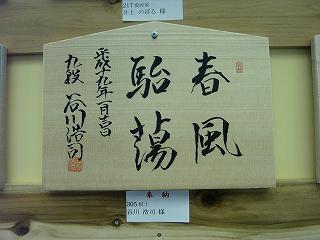 217漫画家
井上 のぼる 様
春風
駘蕩
平成十九年一月吉日
九段 谷川浩司
奉納
305棋士
谷川 浩司 様